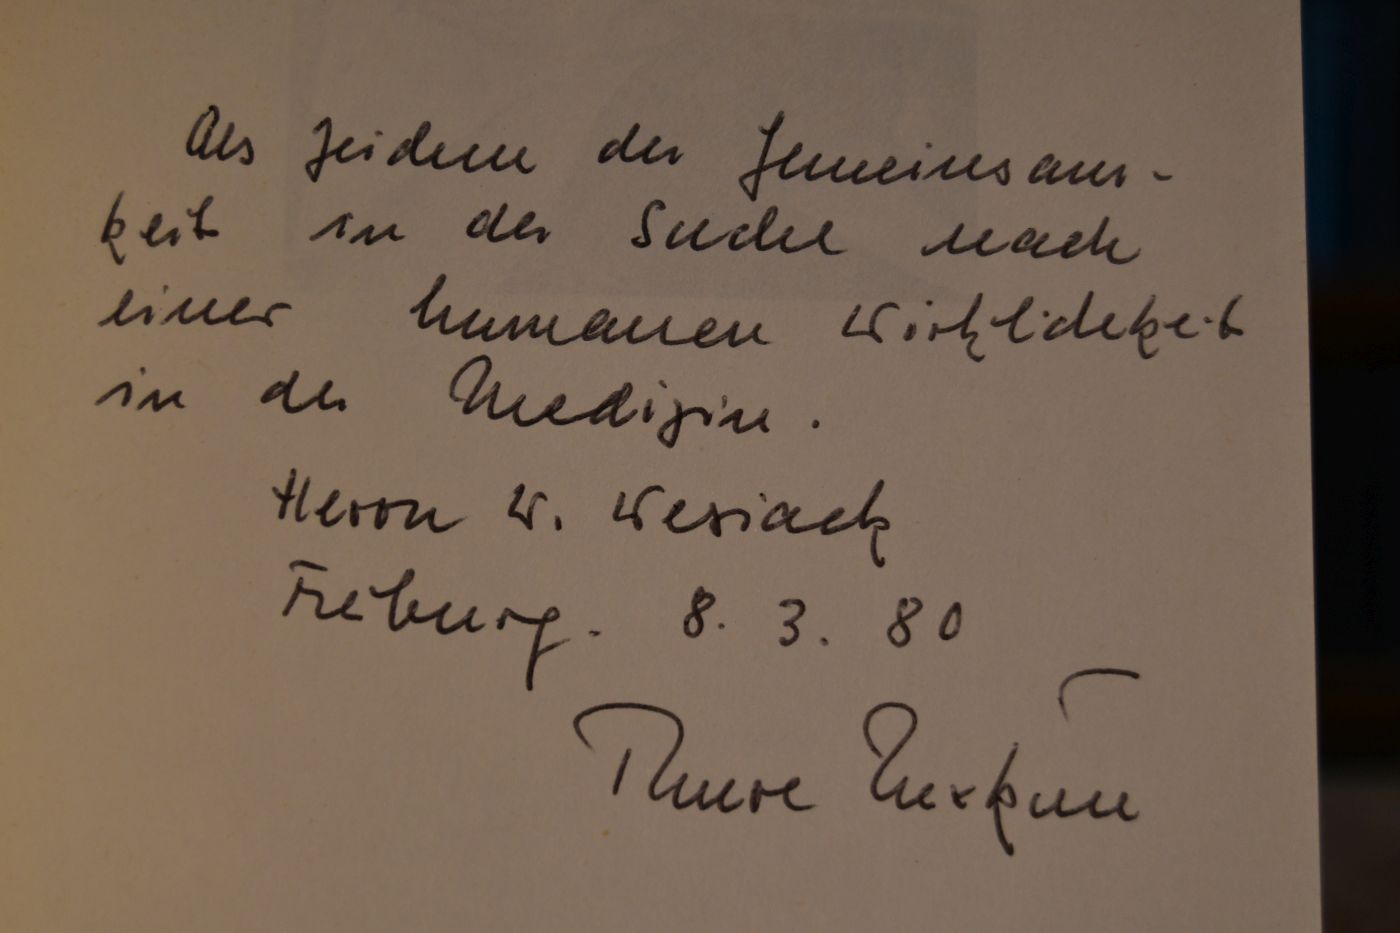 Als Zeichen der Gemeinsam-
keit in der Suche nach
einer humanen Wirklichkeit
in der Medizin.
Herrn W. Wesiack
Freiburg. 8. 3. 80
Thure Uexküll